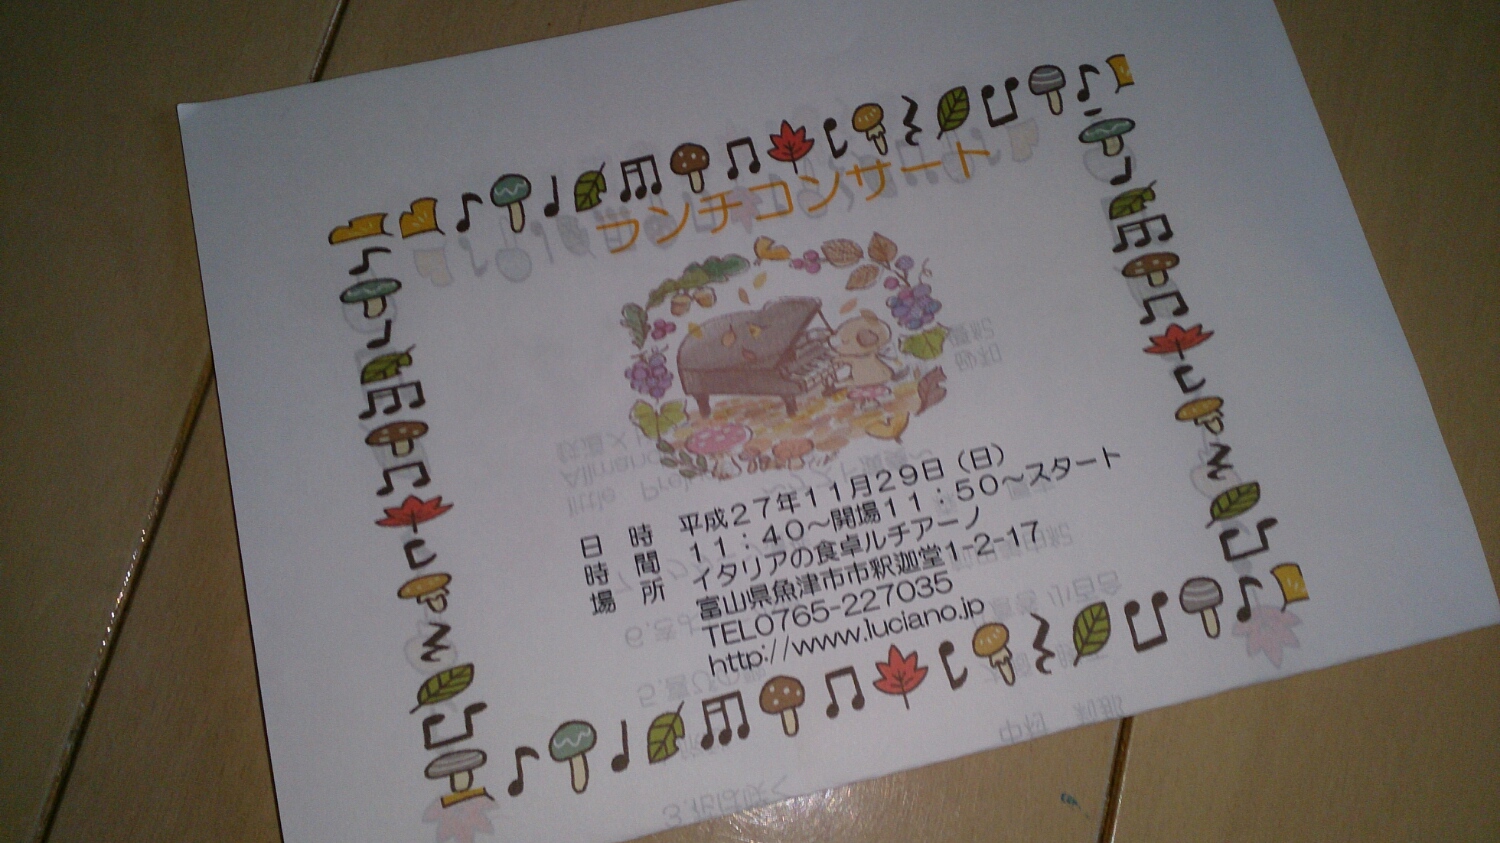 ランチコンサート
日　時　平成２７年１１月２９日（日）
時　間　１１：４０～開場１１：５０～スタート
場　所　イタリアの食卓ルチアーノ
富山県魚津市市釈迦堂1-2-17
TEL0765-227035
http://www.luciano.jp